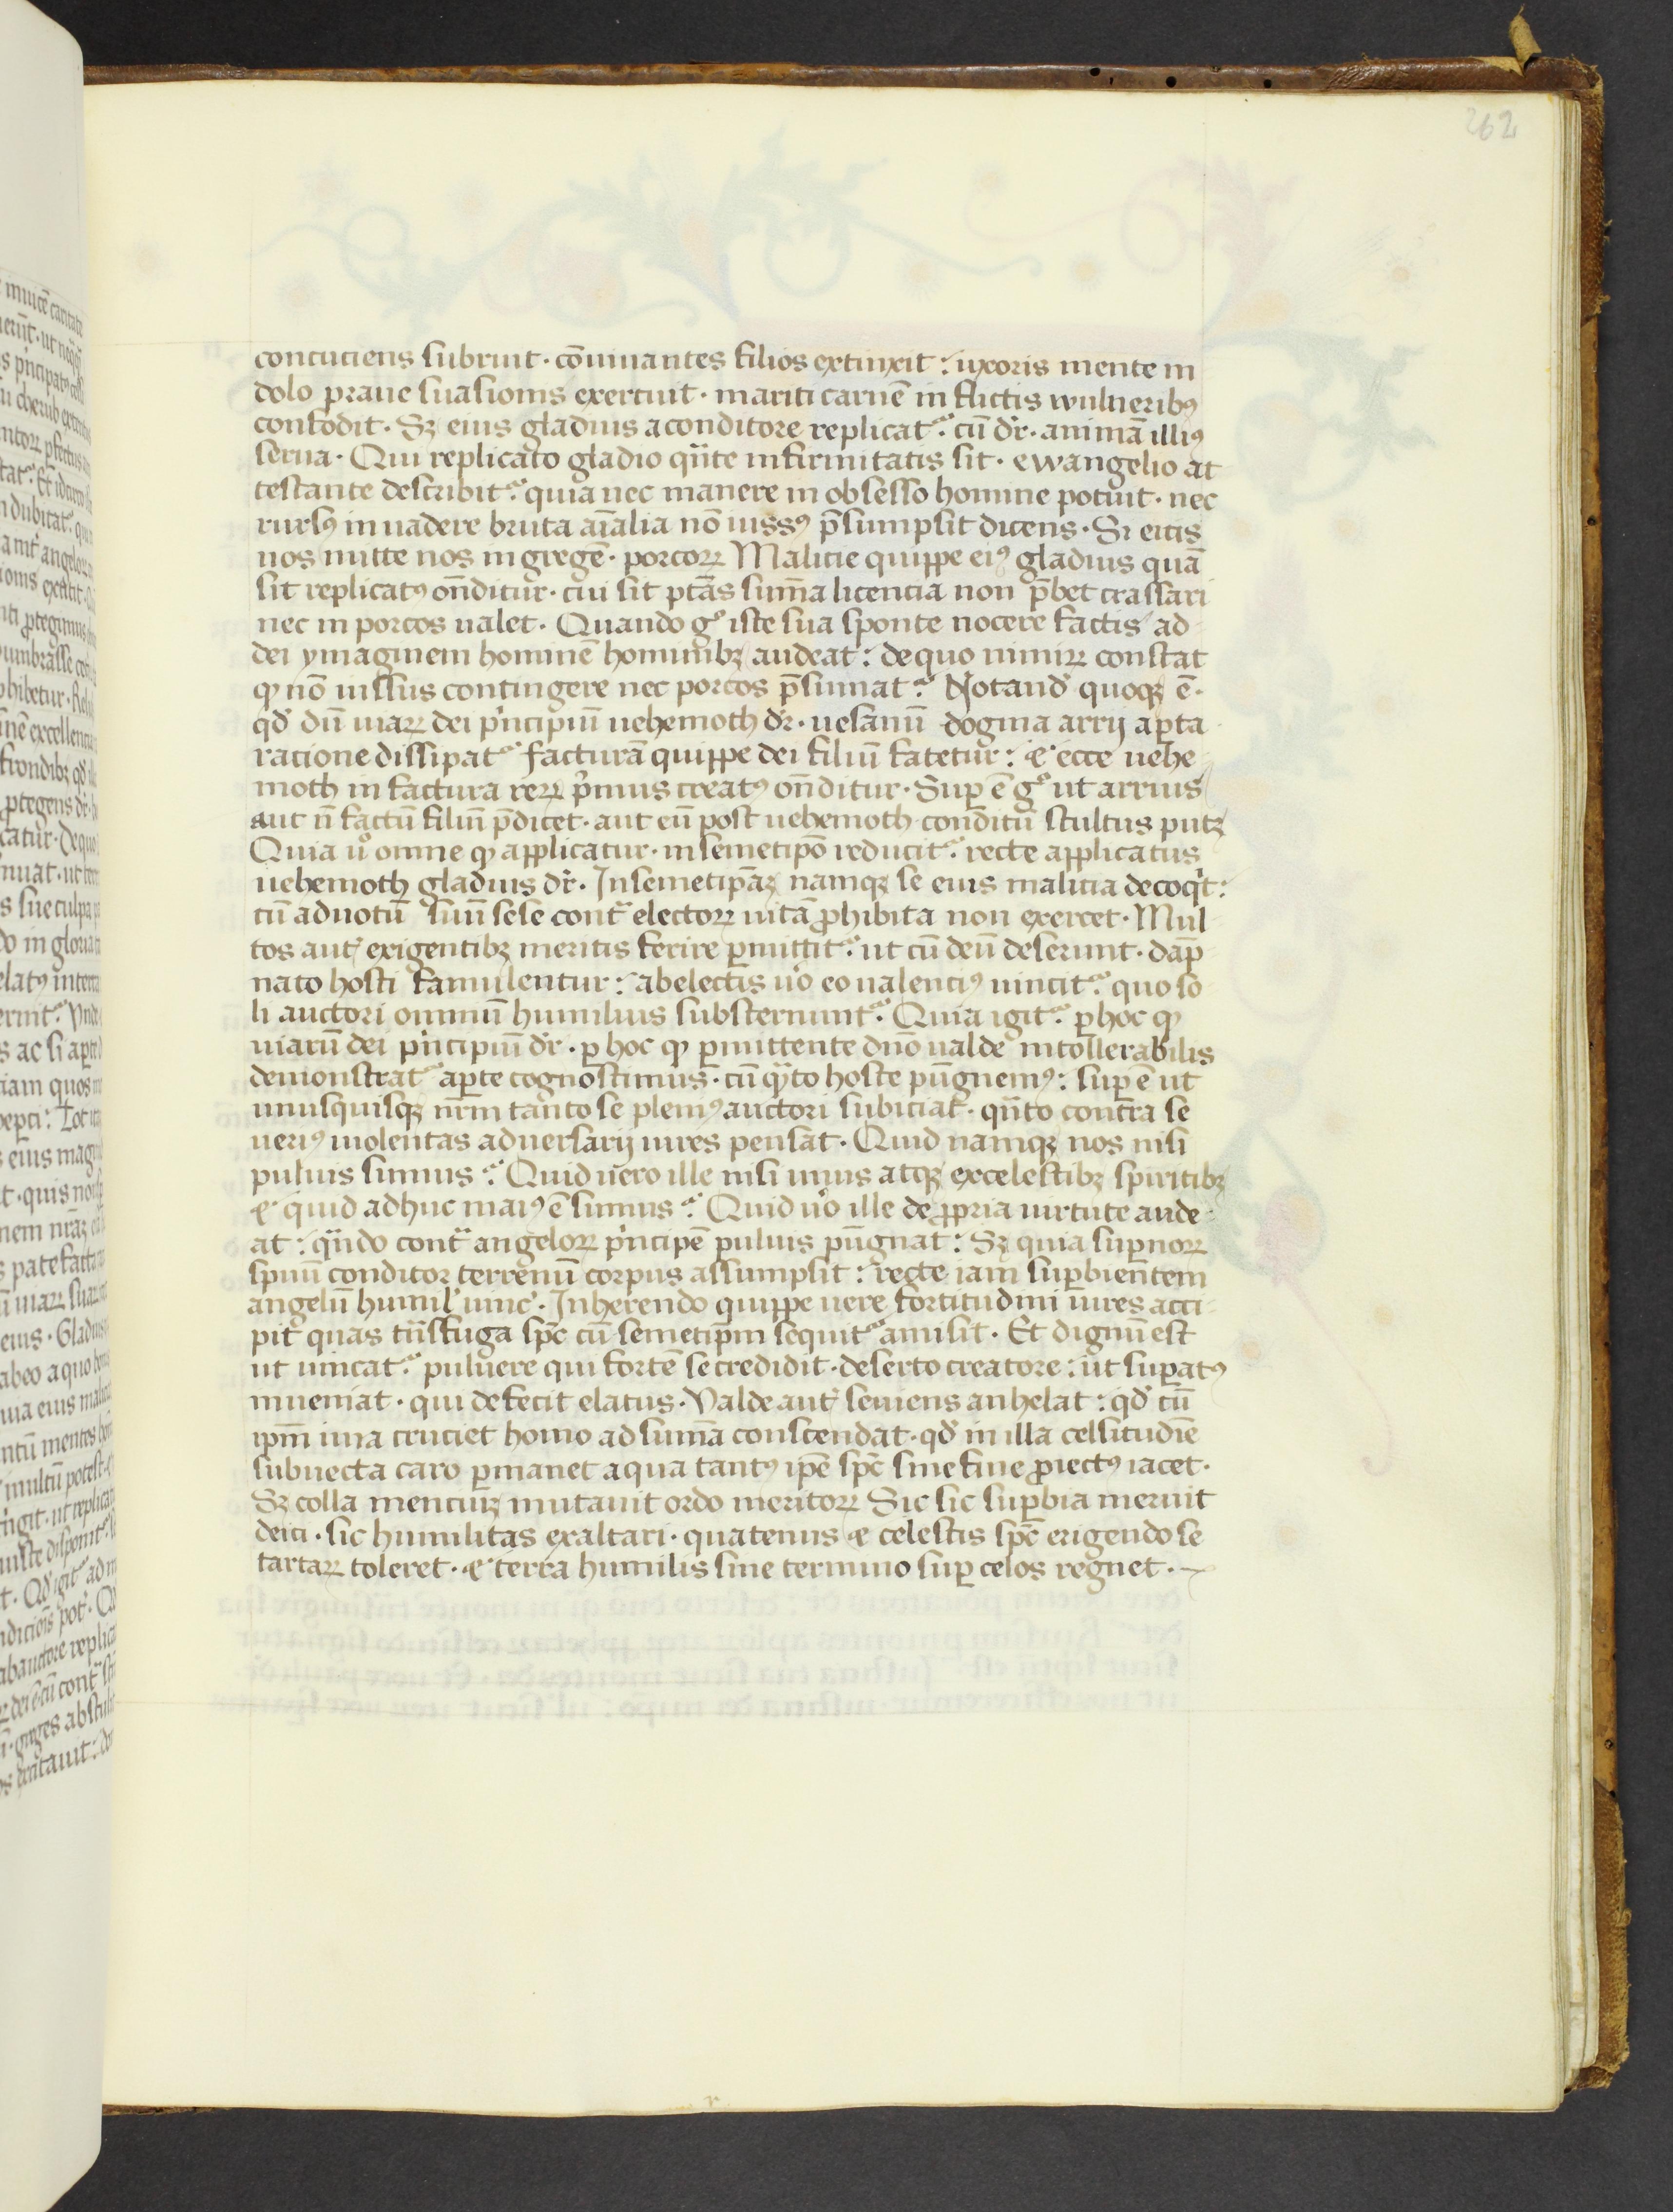 262
concuciens subruit · cōuiuantes filios extinxit : uxoris mente in
dolo praue suasionis exercuit · mariti carnē in flictis wulneribꝰ
confodit · Sꝫ eius gladius a conditore replicat᷑ · cū dr̄ · animā illiꝰ
serua · Qui replicato gladio qͣnte infirmitatis sit · ewangelio at
testante describit᷑ quia nec manere in obsesso homine potuit · nec
rursꝰ inuadere bruta aīalia nō iussꝰ p̄sumpsit dicens · Si eicis
nos mitte nos in gregē · porcoꝝ Malicie quippe eiꝰ gladius quā
sit replicatꝰ on̄ditur · cui sit ptās sum̄a licencia non p̄bet crassari
nec in porcos ualet · Quando gͦ iste sua sponte nocere factis ad
dei ymaginem hominē hominibꝫ audeat : de quo nimiꝝ constat
ꝙ nō iussus contingere nec porcos p̄sumat᷑ Notandͫ quoqꝫ ē ·
qd̓ dū uiaꝝ dei pͥncipiū uehemoth dr̄ · uesanū dogma arrij aꝑta
racione dissipat᷑ facturā quippe dei filiū fatetur : ⁊ ecce uehe
moth in factura reꝝ pͥmus creatꝰ on̄ditur · Suꝑ ē gͦ ut arrius
aut n̄ factū filiū p̄dicet · aut eū post uehemoth conditū stultus putꝫ
Quia uͦ omne ꝙ applicatur · in semetipō reducit᷑ recte applicatus
uehemoth gladius dr̄ · In semetipāꝫ namqꝫ se eius malicia decoqͥt :
cū ad uotū suū sese contͣ electoꝝ uitā ꝓhibita non exercet · Mul
tos aut̄ exigentibꝫ meritis ferire ꝑmittit᷑ ut cū deū deserunt · dāp
nato hosti famulentur : ab electis uͦo eo ualenciꝰ uincit᷑ quo so
li auctori omniū humilius substernunt᷑ Quia igit᷑ ꝑ hoc ꝙ
uiarū dei pͥncipiū dr̄ · ꝑ hoc ꝙ ꝑmittente dn̄o ualde intollerabilis
demonstrat᷑ aꝑte cognoscimus · cū qͣto hoste pūgnemꝰ : suꝑ ē ut
unusquisqꝫ nr̄m tanto se pleniꝰ auctori subiciat · qͣnto contra se
ueriꝰ uiolentas aduersarij uires pensat · Quid namqꝫ nos nisi
puluis sumus᷑ Quid uero ille nisi unus atqꝫ ex celestibꝫ spiritibꝫ
⁊ quid adhuc maiꝰ ē sumus᷑ Quid uͦo ille de ꝓpria uirtute aude
at : qͣndo contͣ angeloꝝ pͥncipē puluis pūgnat : Sꝫ quia suꝑnoꝝ
spūū conditor terrenū corpus assumpsit : recte iam suꝑbientem
angelū humil̓ uinc̓ · Inherendo quippe uere fortitudini uires acci
pit quas tūsfuga sp̄c cū semetip̄m sequit᷑ amisit · Et dignū est
ut uincat᷑ puluere qui fortē se credidit · deserto creatore : ut suꝑatꝰ
inueniat · qui defecit elatus · Valde aut̄ seuiens anhelat : qd̓ cū
ip̄m ima cruciet homo ad sum̄a conscendat · qd̓ in illa celsitudīe
subuecta caro ꝑmanet a qua tantꝰ ip̄e sp̄c sine fine ꝓiectꝰ iacet ·
Sꝫ colla menciuꝫ mutauit ordo meritoꝝ Sic sic suꝑbia meruit
deici · sic humilitas exaltari · quatenus ⁊ celestis sp̄c erigendo se
tartaꝝ toleret · ⁊ terra humilis sine termino suꝑ celos regnet ·